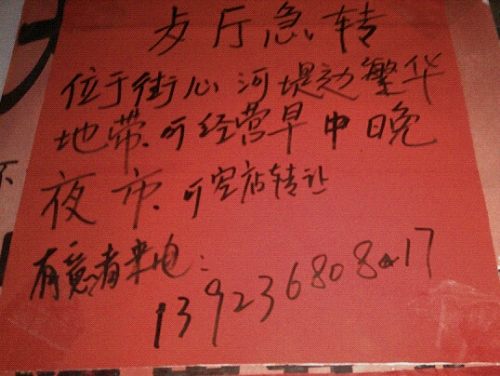 歺厅急转
位于街心河堤边繁华
地带.可经营早中晚
夜市.可空店转让
有意者来电:
13923680817